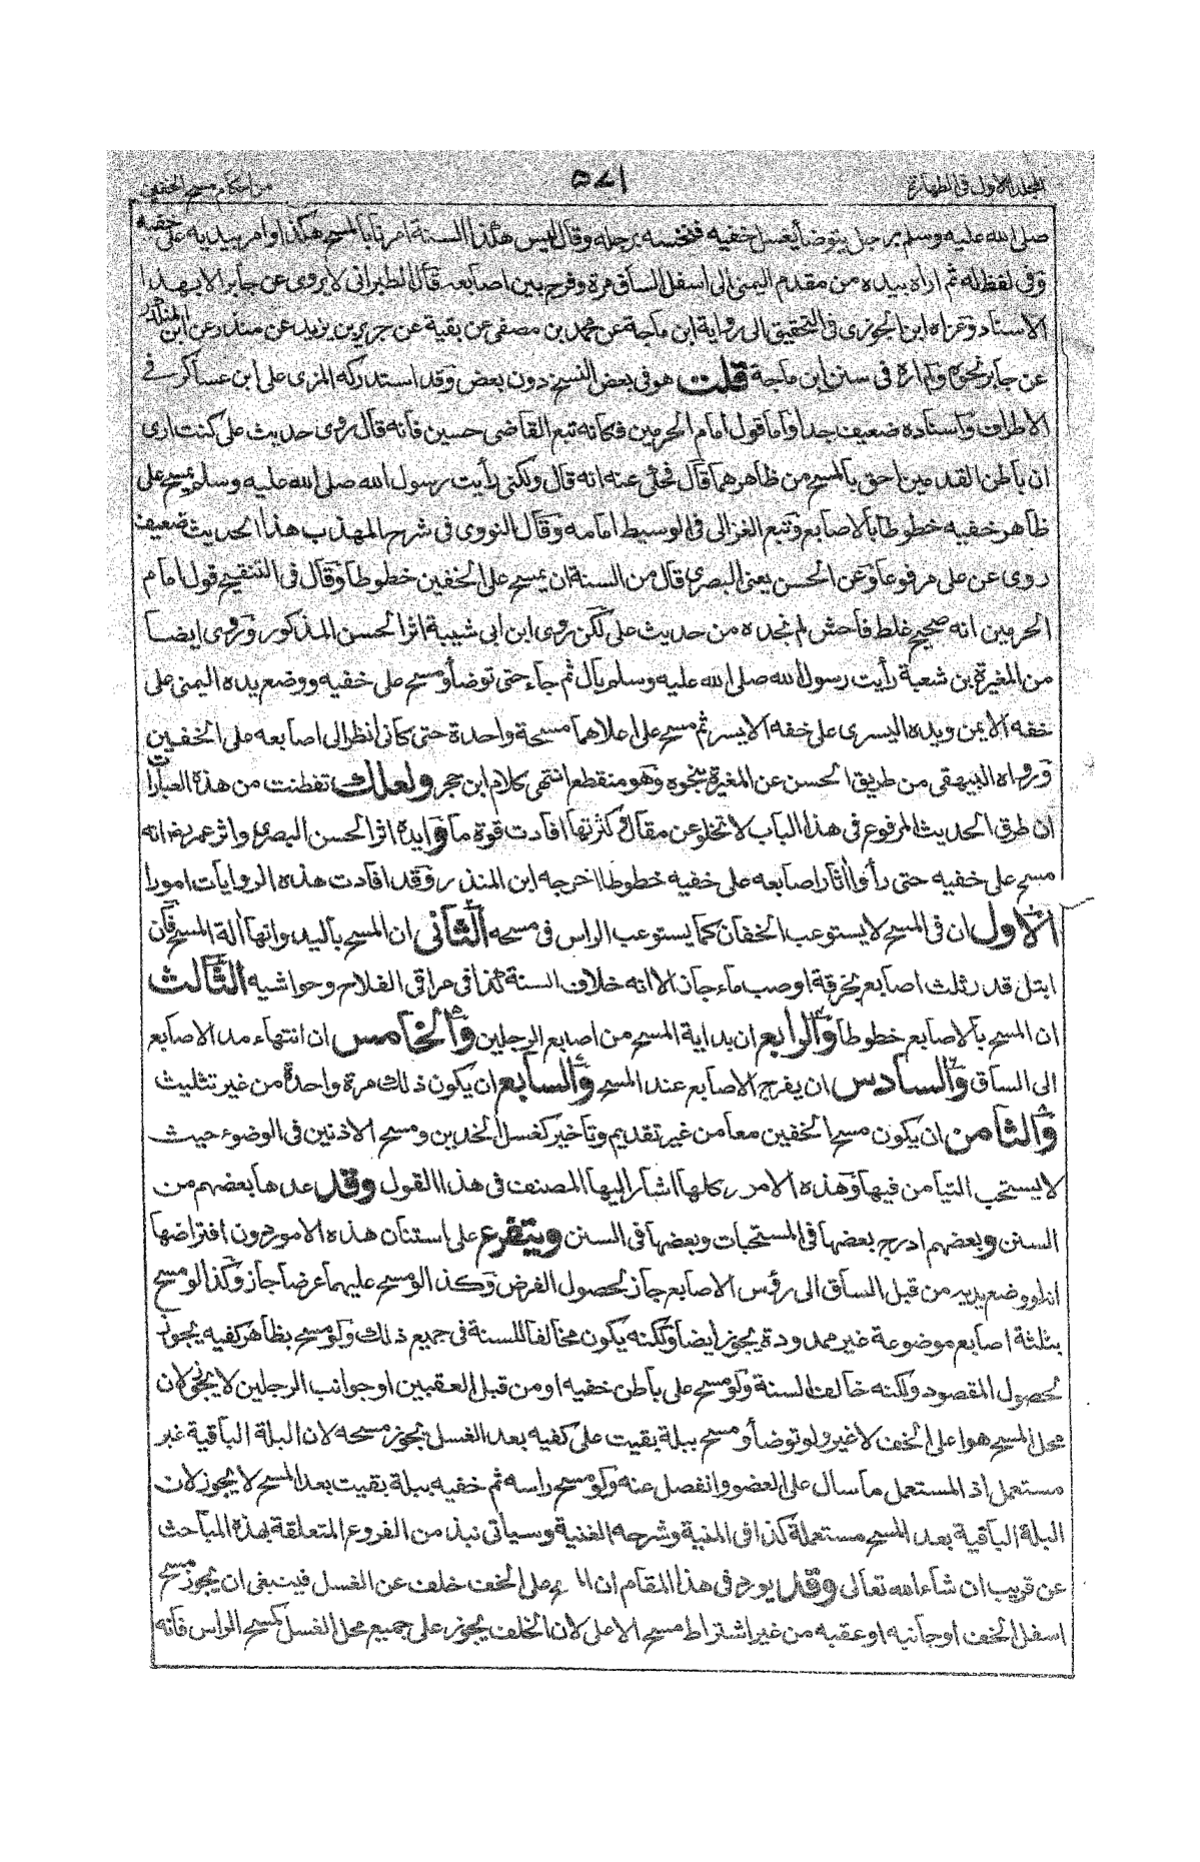 المجلد الاول فى الطهارة
٥٧١
من احكام مسح الخفين
صلى الله عليه وسلم برجل يتوضأ يغسل خفيه فنخسه برجله وقال ليس هكذا السنة امرنا بالمسح هكذا وامر بيديه على خفيه
وفى لفظ له ثم اراه بيده من مقدم اليمنى الى اسفل الساق مرة وفرج بين اصابعه قال الطبرانى لا يروى عن جابر الا بهذا
الاسناد وعزاه ابن الجوزى فى التحقيق الى رواية ابن ماجة عن محمد بن مصفى عن بقية عن جرير بن يزيد عن منذر عن ابن المنكدر
عن جابر نحوه ولم اره فى سنن ابن ماجة قلت هو فى بعض النسخ دون بعض وقد استدركه المزى على ابن عساكر فى
الاطراف واسناده ضعيف جدا واما قول امام الحرمين فكانه تبع القاضى حسين فانه قال روى حديث على كنت ارى
ان باطن القدمين احق بالمسح من ظاهرهما قال فحكى عنه انه قال ولكنى رأيت رسول الله صلى الله عليه وسلم يمسح على
ظاهر خفيه خطوطا بالاصابع وتبع الغزالى فى الوسيط امامه وقال النووى فى شرح المهذب هذا الحديث ضعيف
روى عن على مرفوعا وعن الحسن يعنى البصرى قال من السنة ان يمسح على الخفين خطوطا وقال فى التنقيح قول امام
الحرمين انه صحيح غلط فاحش لم نجده من حديث على لكن روى ابن ابى شيبة اثر الحسن المذكور وروى ايضا
من المغيرة بن شعبة رأيت رسول الله صلى الله عليه وسلم بال ثم جاء حتى توضأ ومسح على خفيه ووضع يده اليمنى على
خفه الايمن ويده اليسرى على خفه الايسر ثم مسح على اعلاهما مسحة واحدة حتى كانى انظر الى اصابعه على الخفين
ورواه البيهقى من طريق الحسن عن المغيرة بنحوه وهو منقطع انتهى كلام ابن حجر ولعلك تفطنت من هذه العبارات
ان طرق الحديث المرفوع فى هذا الباب لا تخلو عن مقال وكثرتها افادت قوة ما وايده اثر الحسن البصرى واثر عمر رض انه
مسح على خفيه حتى رأوا اٰثار اصابعه على خفيه خطوطا اخرجه ابن المنذر وقد افادت هذه الروايات امورا
الاول ان فى المسح لا يستوعب الخفان كما يستوعب الراس فى مسحه الثانى ان المسح باليد وانها اٰلة المسح فان
ابتل قدر ثلث اصابع بخرقة او صب ماء جاز الا انه خلاف السنة كذا فى مراقى الفلاح وحواشيه الثالث
ان المسح بالاصابع خطوطا والرابع ان بداية المسح من اصابع الرجلين والخامس ان انتهاء مد الاصابع
الى الساق والسادس ان يفرج الاصابع عند المسح والسابع ان يكون ذلك مرة واحدة من غير تثليث
والثامن ان يكون مسح الخفين معا من غير تقديم وتاخير كغسل الخدين ومسح الاذنين فى الوضوء حيث
لا يستحب التيامن فيها وهذه الامور كلها اشار اليها المصنف فى هذا القول وقد عدها بعضهم من
السنن وبعضهم ادرج بعضها فى المستحبات وبعضها فى السنن ويتفرع على استنان هذه الامور دون افتراضها
انه لو وضع يديه من قبل الساق الى رؤس الاصابع جاز لحصول الفرض وكذا لو مسح عليهما عرضا جاز وكذا لو مسح
بثلثة اصابع موضوعة غير ممدودة يجوز ايضا ولكنه يكون مخالفا للسنة فى جميع ذلك ولو مسح بظاهر كفيه يجوز
لحصول المقصود ولكنه خالف السنة ولو مسح على باطن خفيه او من قبل العقبين او جوانب الرجلين لا يجوز لان
محل المسح هو اعلى الخف لا غير ولو توضأ ومسح ببلة بقيت على كفيه بعد الغسل يجوز مسحه لان البلة الباقية غير
مستعمل اذ المستعمل ما سال على العضو وانفصل عنه ولو مسح راسه ثم خفيه ببلة بقيت بعد المسح لا يجوز لان
البلة الباقية بعد المسح مستعملة كذا فى المنية وشرحه الغنية وسياتى نبذ من الفروع المتعلقة بهذه المباحث
عن قريب ان شاء الله تعالى وقد يورد فى هذا المقام ان على الخف خلف عن الغسل فينبغى ان يجوز مسح
اسفل الخف او جانبه او عقبه من غير اشتراط مسح الاعلى لان الخلف يجوز على جميع محل الغسل كمسح الراس فانه